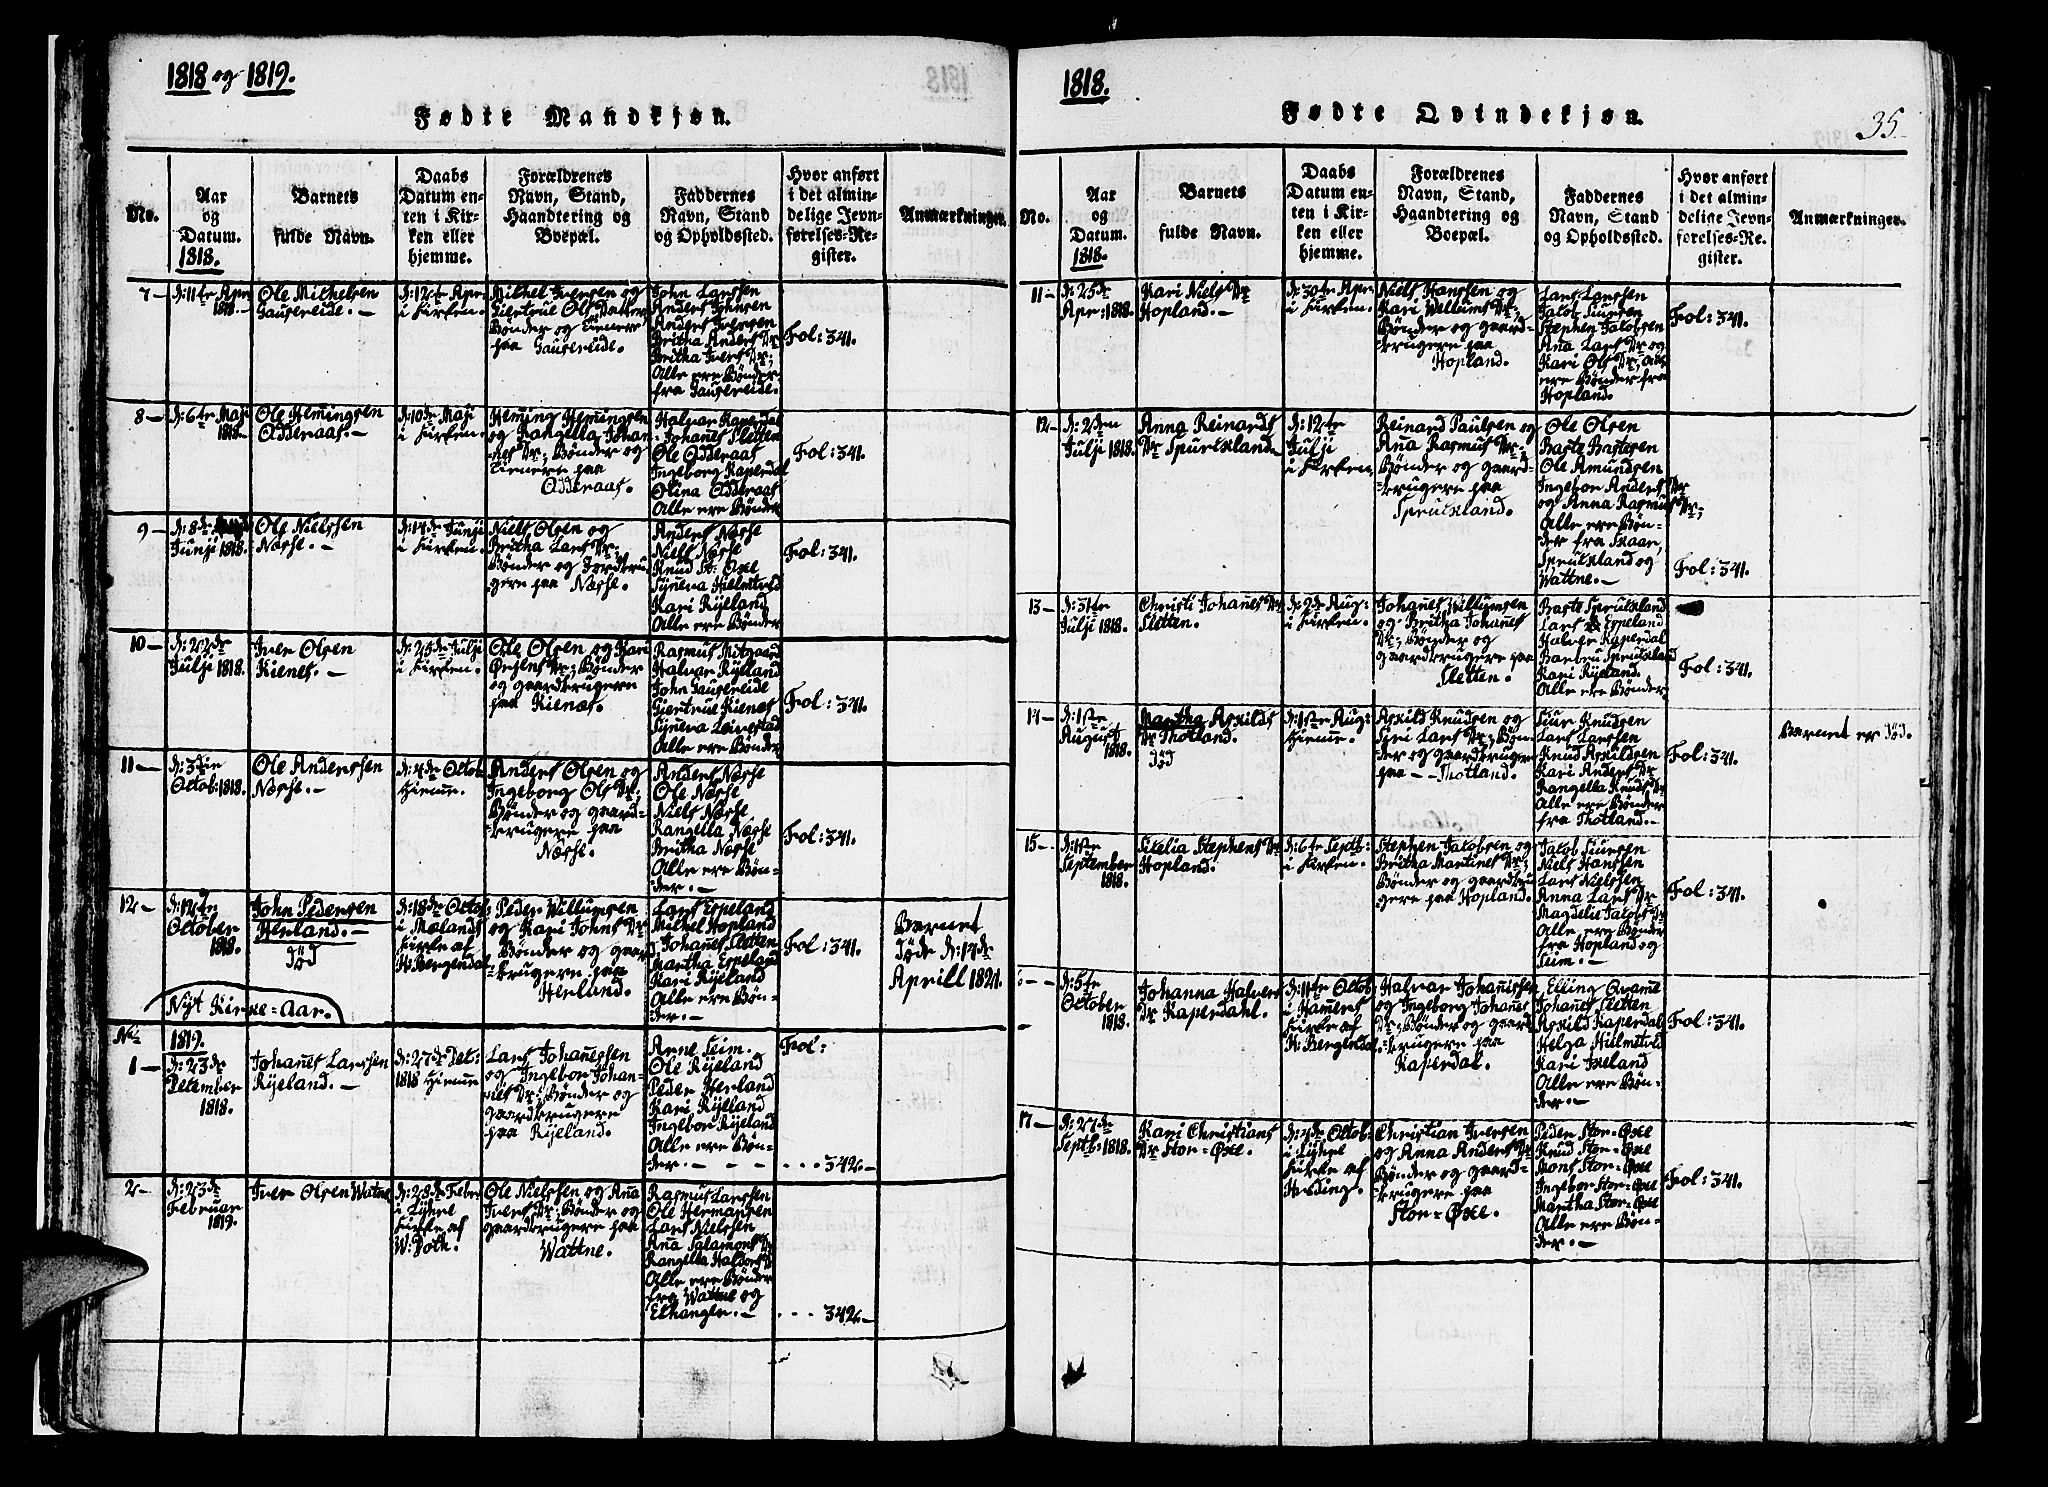 1818 og 1819.
Fødte Mandkjøn.
No.
Aar
og
Datum.
1818.
Barnets
fulde Navn.
Daabs
Datum en-
ten i Kir-
ken eller
hjemme.
Forældrenes
Navn, Stand,
Haandtering og
Boepæl.
Faddernes
Navn, Stand
og Opholdssted.
Hvor anført
i det almin-
delige Jevn-
førelses-Re-
gister.
Anmærkninger.
7-
d: 11te Apr
1818.
Ole Mikelsen
Gausereide.-
d: 12te Apr:
i Kirken.
Mikkel Iversen og
Giertrue Ols Datter
Bønder og
paa Gausereide.
John Larssen
Anders Johnsen
Anders Iversen
Britha Anders Dr
Britha Ivers Dr;
Alle ere Bønder
fra Gausereide.
Fol: 341.
8-
d: 6te Maji
1818.-
Ole Hemingsen
Odderaas.-
d: 10de Maji
i Kirken.
Heming Hemingsen
og Rangella Johan-
nes Dr; Bønder og
paa
Odderaas.
Halvor Kaperdal
Johañes Sletten
Ole Odderaas
Ingeborg Kaperdal
Olina Odderaas
Alle ere Bønder
Fol: 341.
9-
d: 8de
Junji 1818.
Ole Nielssen
Næsse.-
d: 14de Junji
i Kirken.
Niels Olsen og
Britha Lars Dr;
Bønder og Jordbru-
gere paa Næsse.
Anders Næsse
Niels Næsse
Knud St: Øxe
Synneva Hielmtveld
Kari Ryeland
Alle ere Bønder
Fol: 341.
10-
d: 22de
Julji 1818.
Iver Olsen
Kienes.-
d: 25de Julji
i Kirken.
Ole Olsen og Kari
Ørjens Dr; Bønder
og gaardbrugere
paa Kienæs.
Rasmus Mitgaard
Halvor Ryeland
John Gausereide
Giertrue Kienes
Synneva Leirestad
Alle ere Bønder
Fol: 341.
11-
d: 3die
Octob: 1818.
Ole Anderssen
Næsse.-
d: 4de Octob:
Hieme.
Anders Olsen og
Ingeborg Ols Dr;
Bønder og gaard-
brugere paa
Næsse.
Anders Næsse
Ole Næsse
Niels Næsse
Rangella Næsse
Britha Næsse
Alle ere Bøn-
der.-
Fol: 341.
12-
d: 12te
October
1818.
John Pedersen
Herland.-
Död
d: 18de Octob:
i Mælands
Kirke af
Hr Bergendal
Peder Willumsen
og Kari Johns Dr
Bønder og gaard
brugere paa
Herland.
Lars Espeland
Mikkel Hopland
Johañes Sletten
Martha Espeland
Kari Ryeland
Alle ere Bøn-
der.-
Fol: 341.
Barnet
döde d: 14de
Aprill 1821.
Nyt Kirke-Aar.
No: 1819.
1-
d: 23de
December
1818.
Johañes Larssen
Ryeland.-
d: 27de Dec:
1818 Hieme
Lars Johañessen
og Ingebor Johan-
nes Dr; Bønder og
gaardbrugere
paa Ryeland.
Anne Seim.
Ole Ryeland
Peder Herland
Kari Ryeland
Ingebor Ryeland
Alle ere Bøn-
der.- - -
Fol:
... 342.-
2-
d: 23de
Februar
1819.
Iver Olsen Watne
d: 28de Febr
i Lykke
Kirke af
W: Doth.
Ole Nielssen og Aña
Ivers Dr; Bønder og
gaardbrugere paa
Wattne.
Rasmus Larssen
Ole Hermansen
Lars Nielssen
Aña Salamons Dr
Rangella Haldors Dr
Alle ere Bønder
fra Wattne og
Elhanger.-
... 342.-
1818.
Fødte Qvindekjøn.
35.
No.
Aar
og
Datum.
1818.
Barnets
fulde Navn.
Daabs
Datum en-
ten i Kir-
ken eller
hjemme.
Forældrenes
Navn, Stand,
Haandtering og
Boepæl.
Faddernes
Navn, Stand
og Opholdssted.
Hvor anført
i det almin-
delige Jevn-
førelses-Re-
gister.
Anmærkninger.
11-
d: 25de
Apr: 1818.
Kari Niels Dr
Hopland.-
d: 30te Apr:
i Kirken.
Niels Hanssen og
Kari Willums Dr;
Bønder og gaard-
brugere paa
Hopland.
Lars Larssen
Jakob Siursen
Stephen Jakobsen
Aña Lars Dr og
Kari Ols Dr; Alle
ere Bønder fra
Hopland.
Fol: 341.
12-
d: 2den
Julji 1818.
Anna Reinards
Dr Spruksland
d: 12te
Julji
i Kirken
Reinard Paulsen og
Aña Rasmus Dr;
Bønder og gaard-
brugere paa
Spruksland.
Ole Olsen
Baste Bastesen
Ole Amundsen
Ingebor Anders Dr
og Anna Rasmus Dr;
Alle ere Bøn-
der fra Skaar,
Spruksland og
Wattne.-
Fol: 341.
13-
d: 31te
Julji 1818.
Christi Johañes Dr
Sletten.
d: 2de Aug:
i Kirken.
Johañes Willumsen
og Britha Johañes
Dr; Bønder og
gaardbrugere paa
Sletten.
Baste Spruksland
Lars Espeland
Halvor Kaperdal
Barbru Spruksland
Kari Ryeland.
Alle ere Bønder
Fol: 341.
14-
d: 1ste
August
1818.
Martha Askilds
Dr Thotland.
Död
d: 1ste Aug:
Hieme.
Askild Knudsen og
Siri Lars Dr; Bøn-
der og gaardbrugere
paa - - Thotland.
Siur Knudsen
Lars Larssen
Knud Askildsen
Kari Anders Dr
Rangella Knuds Dr
Alle ere Bønder
fra Thotland.-
Fol: 341.
Barnet er död.
15-
d: 1ste
September
1818.
Sicelia Stephens Dr
Hopland.
d: 6te Septb:
i Kirken.
Stephen Jakobsen og
Britha Martines Dr;
Bønder og gaardbru
gere paa Hopland.
Jakob Siursen
Niels Hanssen
Lars Nielssen
Anna Lars Dr
Magdelie Jakobs Dr
Alle ere Bønder
fra Hopland og
Seim.-
Fol: 341.
d: 5te
October
1818.
Johanna Halvors
Dr Kaperdahl.
d: 11te Octob:
i Hamers
Kirke af
Hr Bergendal
Halvor Johañissen
og Ingeborg Johañes
Dr; Bønder og gaard
brugere paa
Kaperdal.
Elling Qvame
Johañes Sletten
Askild Kaperdal
Helga Hielmtveld
Kari Ixeland
Alle ere Bøn-
der.-
Fol: 341.
17-
d: 27de
Septb: 1818.
Kari Christians
Dr Stor-Øxe.
d: 4de Octob:
i Lykke
Kirke af
Hr Ding.
Christian Iversen
og Anna Anders Dr
Bønder og gaard-
brugere paa
Stor-Øxe.
Peder Stor-Øxe
Knud Stor-Øxe
Mons Stor-Øxe
Ingebor Stor-Øxe
Martha Stor-Øxe
Alle ere Bøn-
der.-
Fol: 341.